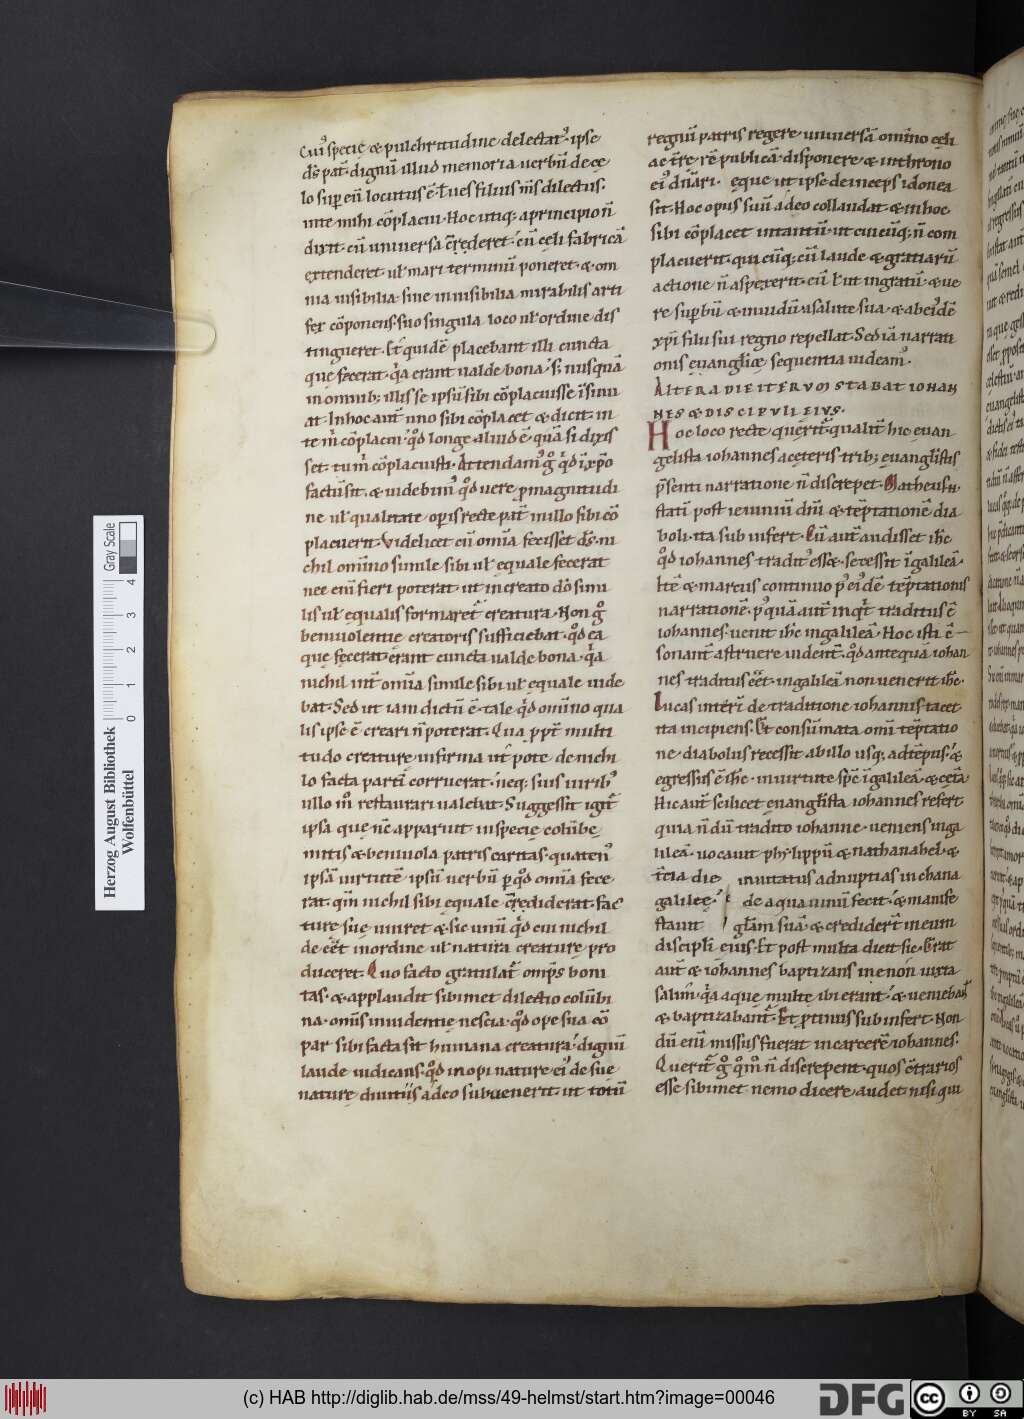 Cui᷒ specie & pulchritudine delectat᷒. ipse
d̄s pat̄. dignū illud memoria uerbū de cę
lo sup̱ eū locutus ē. Tu es filius m̄s dilectus.
in te mihi cōplacui. Hoc utiq; a principio n̄
dixit. cū uniuersa crēderet. cū cęli fabricā
extenderet. ul̄ mari terminū poneret. & om
nia uisibilia siue inuisibilia mirabilis arti
fex cōponens. suo singula loco ul̄ ordine dis
tingueret. Et quidē placebant illi cuncta
quę fecerat. q̇a erant ualde bona. s; nusquā
in omnib; illis se ipsū sibi cōplacuisse īsinu
at. In hoc aut̄ uno sibi cōplacet & dicit. in
te m̄ cōplacui. q̊d longe aliud ē. quā si dixis
set. tu m̄ cōplacuisti. Attendam᷒ g̊ q̇d ī xp̄o
factū sit. & uidebim᷒ q̊d uere p̱ magnitudi
ne ul̄ qualitate operis recte pat̄ in illo sibi cō
placuerit. Videlicet cū om̄ia fecisset d̄s. ni
chil om̄ino simile sibi ul̄ equale fecerat
nec eni̅ fieri poterat. ut increato dō simi
lis ul̄ equalis formaret̄ creatura. Non g̊
beniuolentię creatoris sufficiebat. q̊d ea
quę fecerat erant cuncta ualde bona. q̇a
nichil int̄ om̄ia simile sibi ul̄ equale uide
bat. Sed ut iam dictū ē. tale q̇d om̄ino qua
lis ipse ē creari n̄ poterat. Qua ppt̄ multi
tudo creaturę infirma ut pote de nichi
lo facta partī corruerat. neq; suis uirib᷒
ullo m̊ restaurari ualebat. Suggessit igit̄
ipsa quę nc̄ apparuit in specie colūbę
mitis & beniuola patris caritas. quaten᷒
ipsā uirtutē ipsū uerbū p̱ q̊d om̄ia fece
rat. qm̄ nichil sibi equale crēdiderat. fac
turę suę uniret & sic unū q̇d cui nichil
de eēt in ordine ul̄ natura creaturę pro
duceret. Quo facto gratulat̄ omp̄s boni
tas. & applaudit sibimet dilectio colūbi
na. om̄is inuidentię nescia. q̊d ope sua cō
par sibi facta sit humana creatura. dignū
laude iudicans. q̊d inopi naturę ei᷒ de suę
naturę diuitiis adeo subuenerit. ut totū
regnū patris regere uniuersā om̄ino cęli
ac t̄rę rē publicā disponere & in throno
ei᷒ dn̄ari. ęque ut ipse deinceps idonea
sit. Hoc opus suū adeo collaudat. & in hoc
sibi cōplacet in tantū. ut cuicūq; n̄ com
placuerit. quicūq; cū laude & gratiarū
actione n̄ aspexerit. eū ł ut ingratū. & ue
re sup̱bū & inuidū a salute sua. & ab ei᷒dē
xp̄i filii sui regno repellat. Sed iā narrati
onis euangelicę sequentia uideam᷒.
ALTERA DIE ITERVM STABAT IOHAN
NES & DISCIPVLI EIVS.
Hoc loco recte querit̄. qualit̄ hic euan
gelista iohannes a cęteris trib; euangl̄istis
p̄senti narratione n̄ discrepet. Matheus n.
statī post ieiuniū dn̄i & tēptationē dia
boli. ita sub infert. Cū aut̄ audisset ih̄c
q̊d iohannes tradit᷒ esse. secessit ī galileā.
Itē & marcus continuo p᷒ ei᷒dē tēptationis
narrationē. p᷒quā aut̄ inq̇t traditus ē
iohannes. uenit ih̄c in galileā. Hoc isti ē
sonant̄ astruere uident̄. q̊d antequā iohan
nes traditus eēt. in galileā non uenerit ih̄c.
Lucas interī de traditione iohannis tacet
ita incipiens. Et consūmata omī tēptatio
ne diabolus recessit ab illo usq; ad tēpus. &
egressus ē ih̄c. in uirtute sp̄c ī galileā. & cetā
Hic aut̄ scilicet euangl̄ista iohannes refert.
quia n̄ dū tradito iohanne. ueniens in ga
lileā. uocauit phylippū & nathanahel. &
t̄cia die inuitatus ad nuptias in chana
galileę. de aqua uinū fecit. & manife
stauit gl̄am suā. & crediderūt in eum
discipli eius. Et post multa dicit sic. Erat
aut̄ & iohannes baptizans in enon iuxta
salim. q̇a aquę multę ibi erant. & ueniebant
& baptizabant̄. Et p̱tinus sub infert. Non
dū eni̅ missus fuerat in carcerē iohannes.
Querit̄ g̊ q̊m̊ n̄ discrepent. quos c̄trarios
esse sibimet nemo dicere audet. nisi qui
Herzog August Bibliothek
Wolfenbüttel
Gray Scale
0 1 2 3 4
(c) HAB http://diglib.hab.de/mss/49-helmst/start.htm?image=00046
DFG
cc BY SA